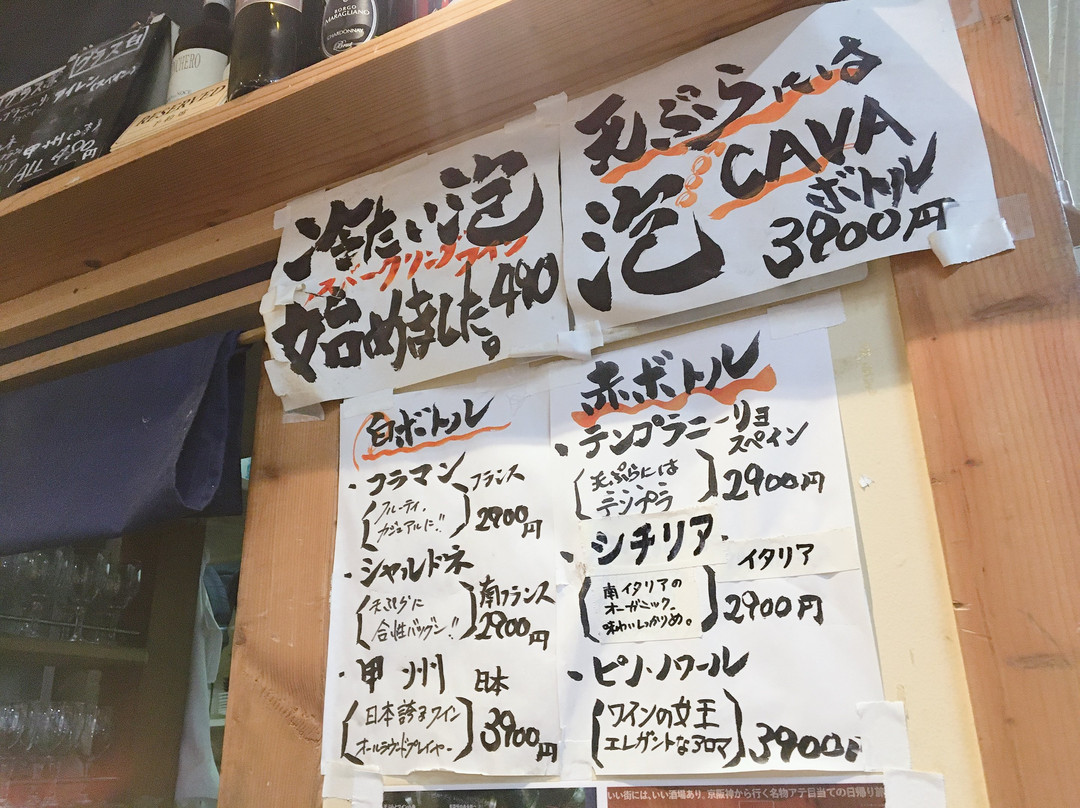 BORGO
MARAGLIANO
CHARDONNAY
RESERVED
グラス白
ALL 490円
天ぷらには
泡 CAVA
ボトル
3900円
冷たい泡
スパークリングワイン
始めました。490
白ボトル
・コラマン フランス
フルーティ、
カジュアルに!!
2900円
・シャルドネ
天ぷらに
合性バツグン!!
南フランス
2900円
・甲州 日本
日本誇るワイン
オールラウンドプレイヤー
3900円
赤ボトル
・テンプラニーリョ
スペイン
天ぷらには
テンプラ
2900円
・シチリア.
イタリア
南イタリアの
オーガニック。
味わいしっかりめ。
2900円
・ピノ・ノワール
ワインの女王
エレガントなアロマ
3900円
いい街には、いい酒場あり。京阪神から行く名物アテ目当ての日帰り